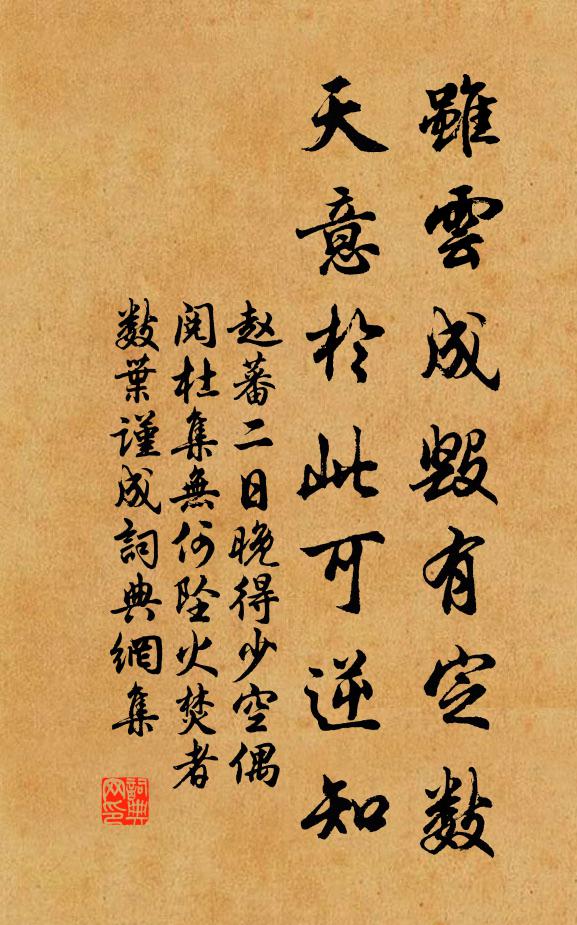 雖雲成毀有定數
天意於此可逆知
赵蕃二日晚得少空偶
閱杜集無何墜火焚者
數葉謹成詞典網集
詞典網印